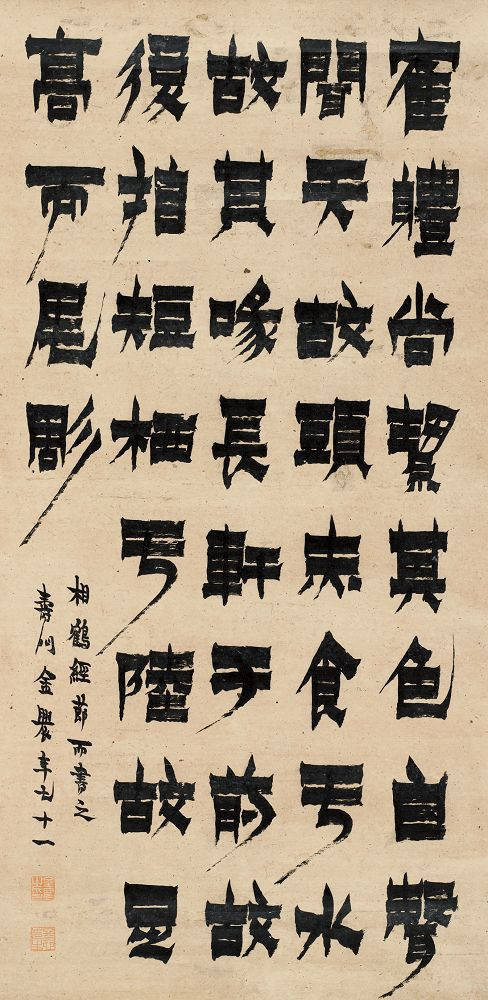 隺軆尚絜其色白聲
聞天故頭赤食亏水
故其喙長軒于前故
後指短栖亏陸故足
高而尾彫
相鶴經節而書之
壽門金農年七十一